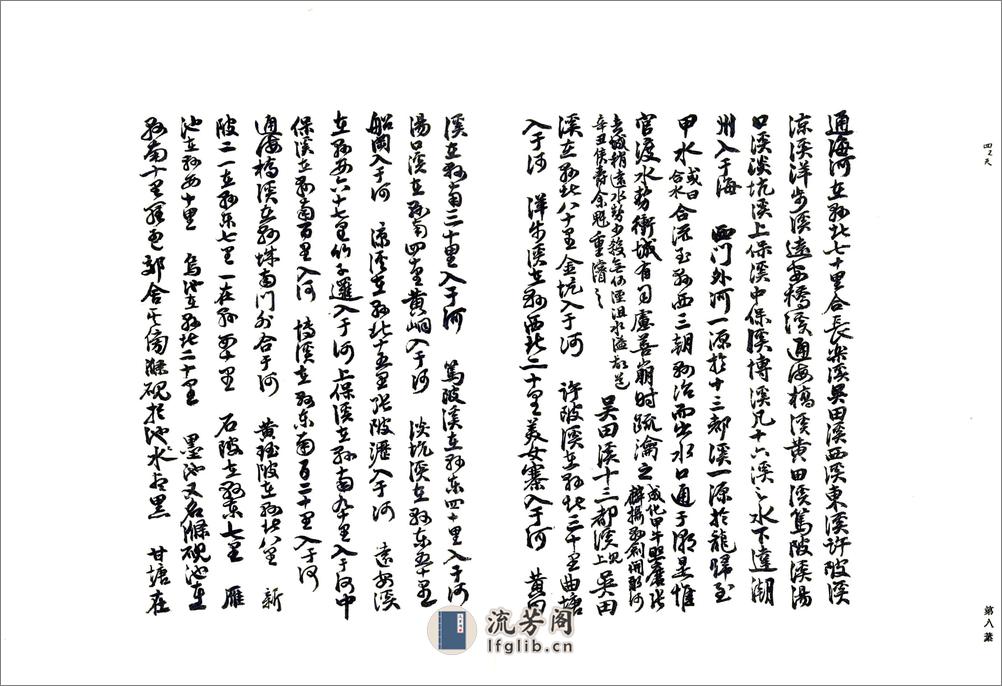 通海河在縣北七十里合長樂溪吳田溪西溪東溪許陂溪
涼溪洋步溪遠安橋溪通海橋溪黃田溪篤陂溪湯
口溪淡坑溪上保溪中保溪博溪凡十六溪之水下達潮
州入于海 西門外河一源於十三都溪一源於龍歸至
甲水或曰合水合流至縣西三朝縣治而出水口通于潮是惟
官渡水勢衝城有司慮善崩時疏瀹之成化甲午照磨張
去城稍遠水勢少殺 水溢
辛丑 壽余 重濬之 吳田溪十三都溪上 吳田
溪在縣北八十里金坑入于河 許陂溪在縣北三十里曲塘
入于河 洋步溪在縣西北二十里美女寨入于河 黃田
溪在縣南三十里入于河 篤陂溪在縣東四十里入于河
湯口溪在縣南四十里黃峒入于河 淡坑溪在縣東五十里
船閣入于河 涼溪在縣北十五里張陂滙入于河 遠安溪
在縣西六十七里竹子 入于河上保溪在縣南九十里入于河中
保溪在縣南百里入河 博溪在縣東南百二十里入于河
通海橋溪在縣城南門外合于河 黃 陂在縣北八里 新
陂二一在縣東七里一在縣西十里 石陂在縣東七里 雁
池在縣西十里 烏池在縣北二十里 墨池又名滌硯池在
縣南十里 舍 滌硯於池水為黑 甘塘在
四之天
第八葉
流芳阁
lfglib.cn